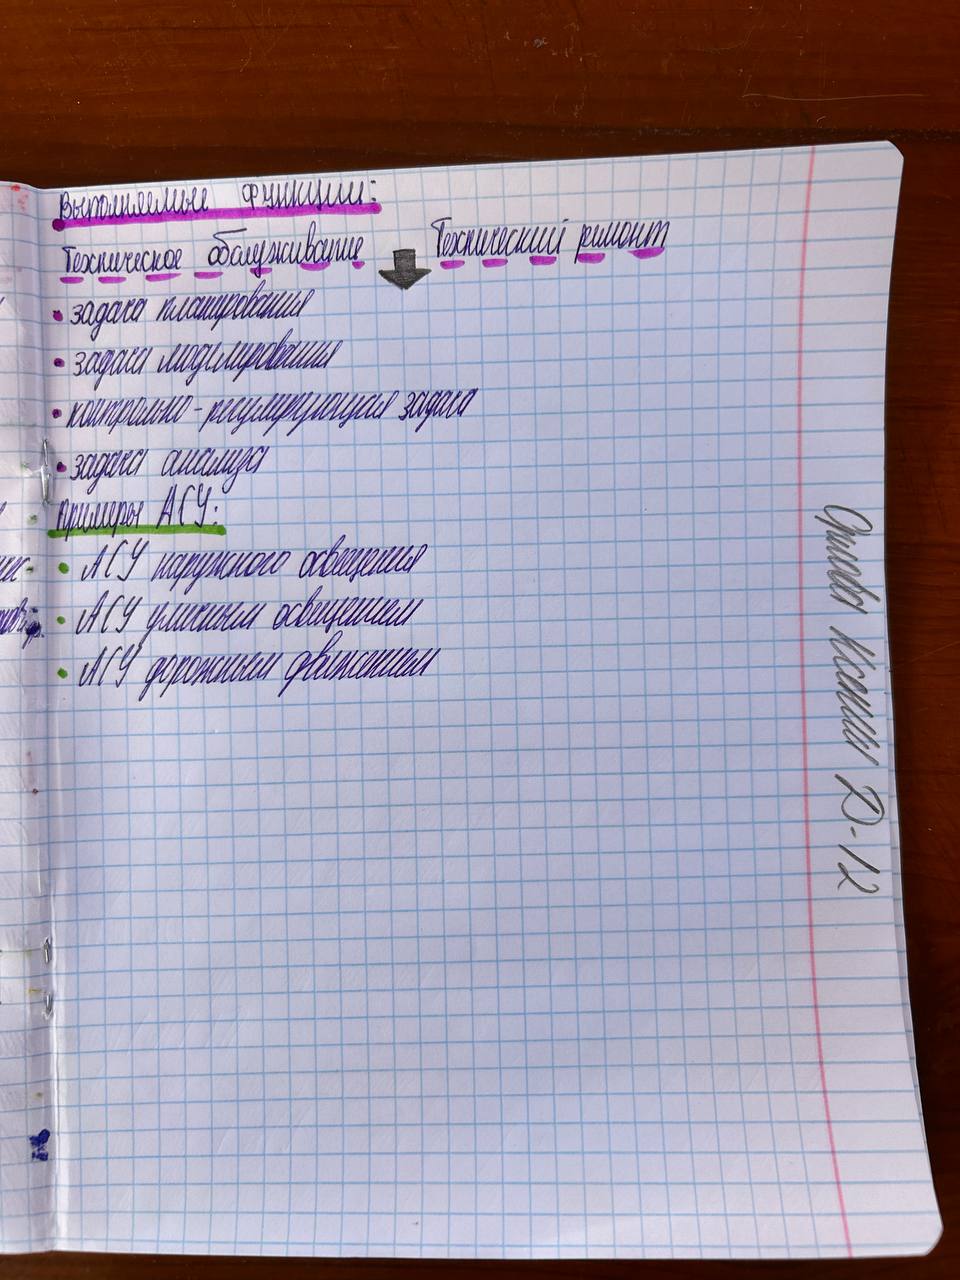 Выполняемые функции:
Техническое обслуживание Технический ремонт
• задача планирования
• задача моделирования
• контрольно-регулирующая задача
• задача анализа
Примеры АСУ:
• АСУ наружного освещения
• АСУ уличным освещением
• АСУ дорожным движением
Ксении Д-12